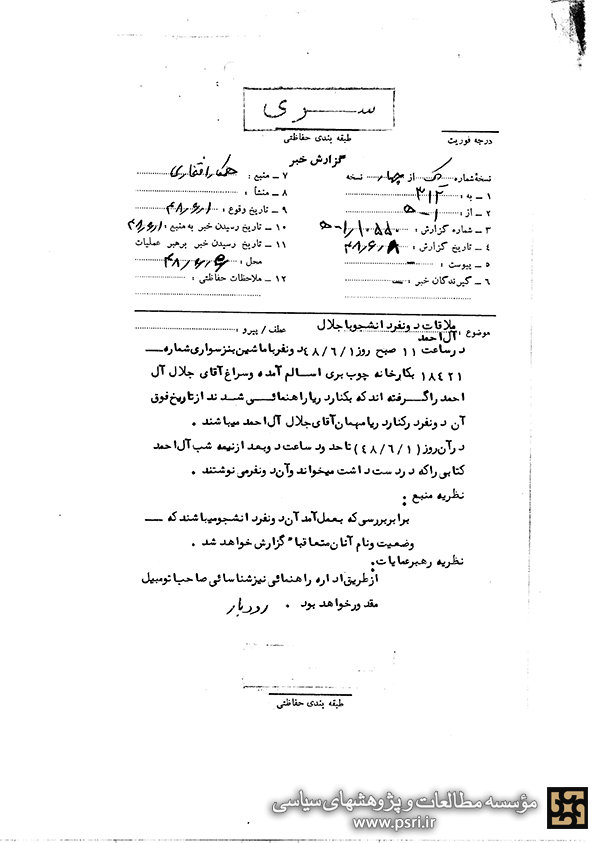 سری
طبقه بندی حفاظتی
درجه فوریت
گزارش خبر
نسخه شماره یک از چهار نسخه
۱ ـ به : ۳۱۲
۲ ـ از : ۱-ه
۳ ـ شماره گزارش : ۱۰۵۵۰/ه-۱
۴ ـ تاریخ گزارش : ۴۸٫۶٫۸
۵ ـ پیوست : ـ
۶ ـ گیرندگان خبر : ـ
۷ ـ منبع : همکار افتخاری
۸ ـ منشأ :
۹ ـ تاریخ وقوع : ۴۸٫۶٫۱
۱۰ ـ تاریخ رسیدن خبر به منبع : ۴۸٫۶٫۱
۱۱ ـ تاریخ رسیدن خبر برهبر عملیات
محل : ۴۸٫۶٫۶
۱۲ ـ ملاحظات حفاظتی :
موضوع : ملاقات دونفر دانشجو با جلال آل احمد
عطف / پیرو :
در ساعت ۱۱ صبح روز ۴۸/۶/۱ دونفر با ماشین بنز سواری شماره ـ
۱۸۴۲۱ بکارخانه چوب بری اسالم آمده و سراغ آقای جلال آل
احمد را گرفته اند که بکنار دریا راهنمائی شدند از تاریخ فوق
آن دونفر در کنار دریا مهمان آقای جلال آل احمد میباشند .
در آن روز (۴۸/۶/۱) تا حدود ساعت دو بعد از نیمه شب آل احمد
کتابی را که در دست داشت میخواند و آن دونفر می نوشتند .
نظریه منبع :
برابر بررسی که بعمل آمد آن دونفر دانشجو میباشند که ـ
وضعیت و نام آنان متعاقباً گزارش خواهد شد .
نظریه رهبر عملیات :
از طریق اداره راهنمائی نیز شناسائی صاحب اتومبیل
مقدور خواهد بود . رودبار
طبقه بندی حفاظتی
مؤسسه مطالعات و پژوهشهای سیاسی
www.psri.ir